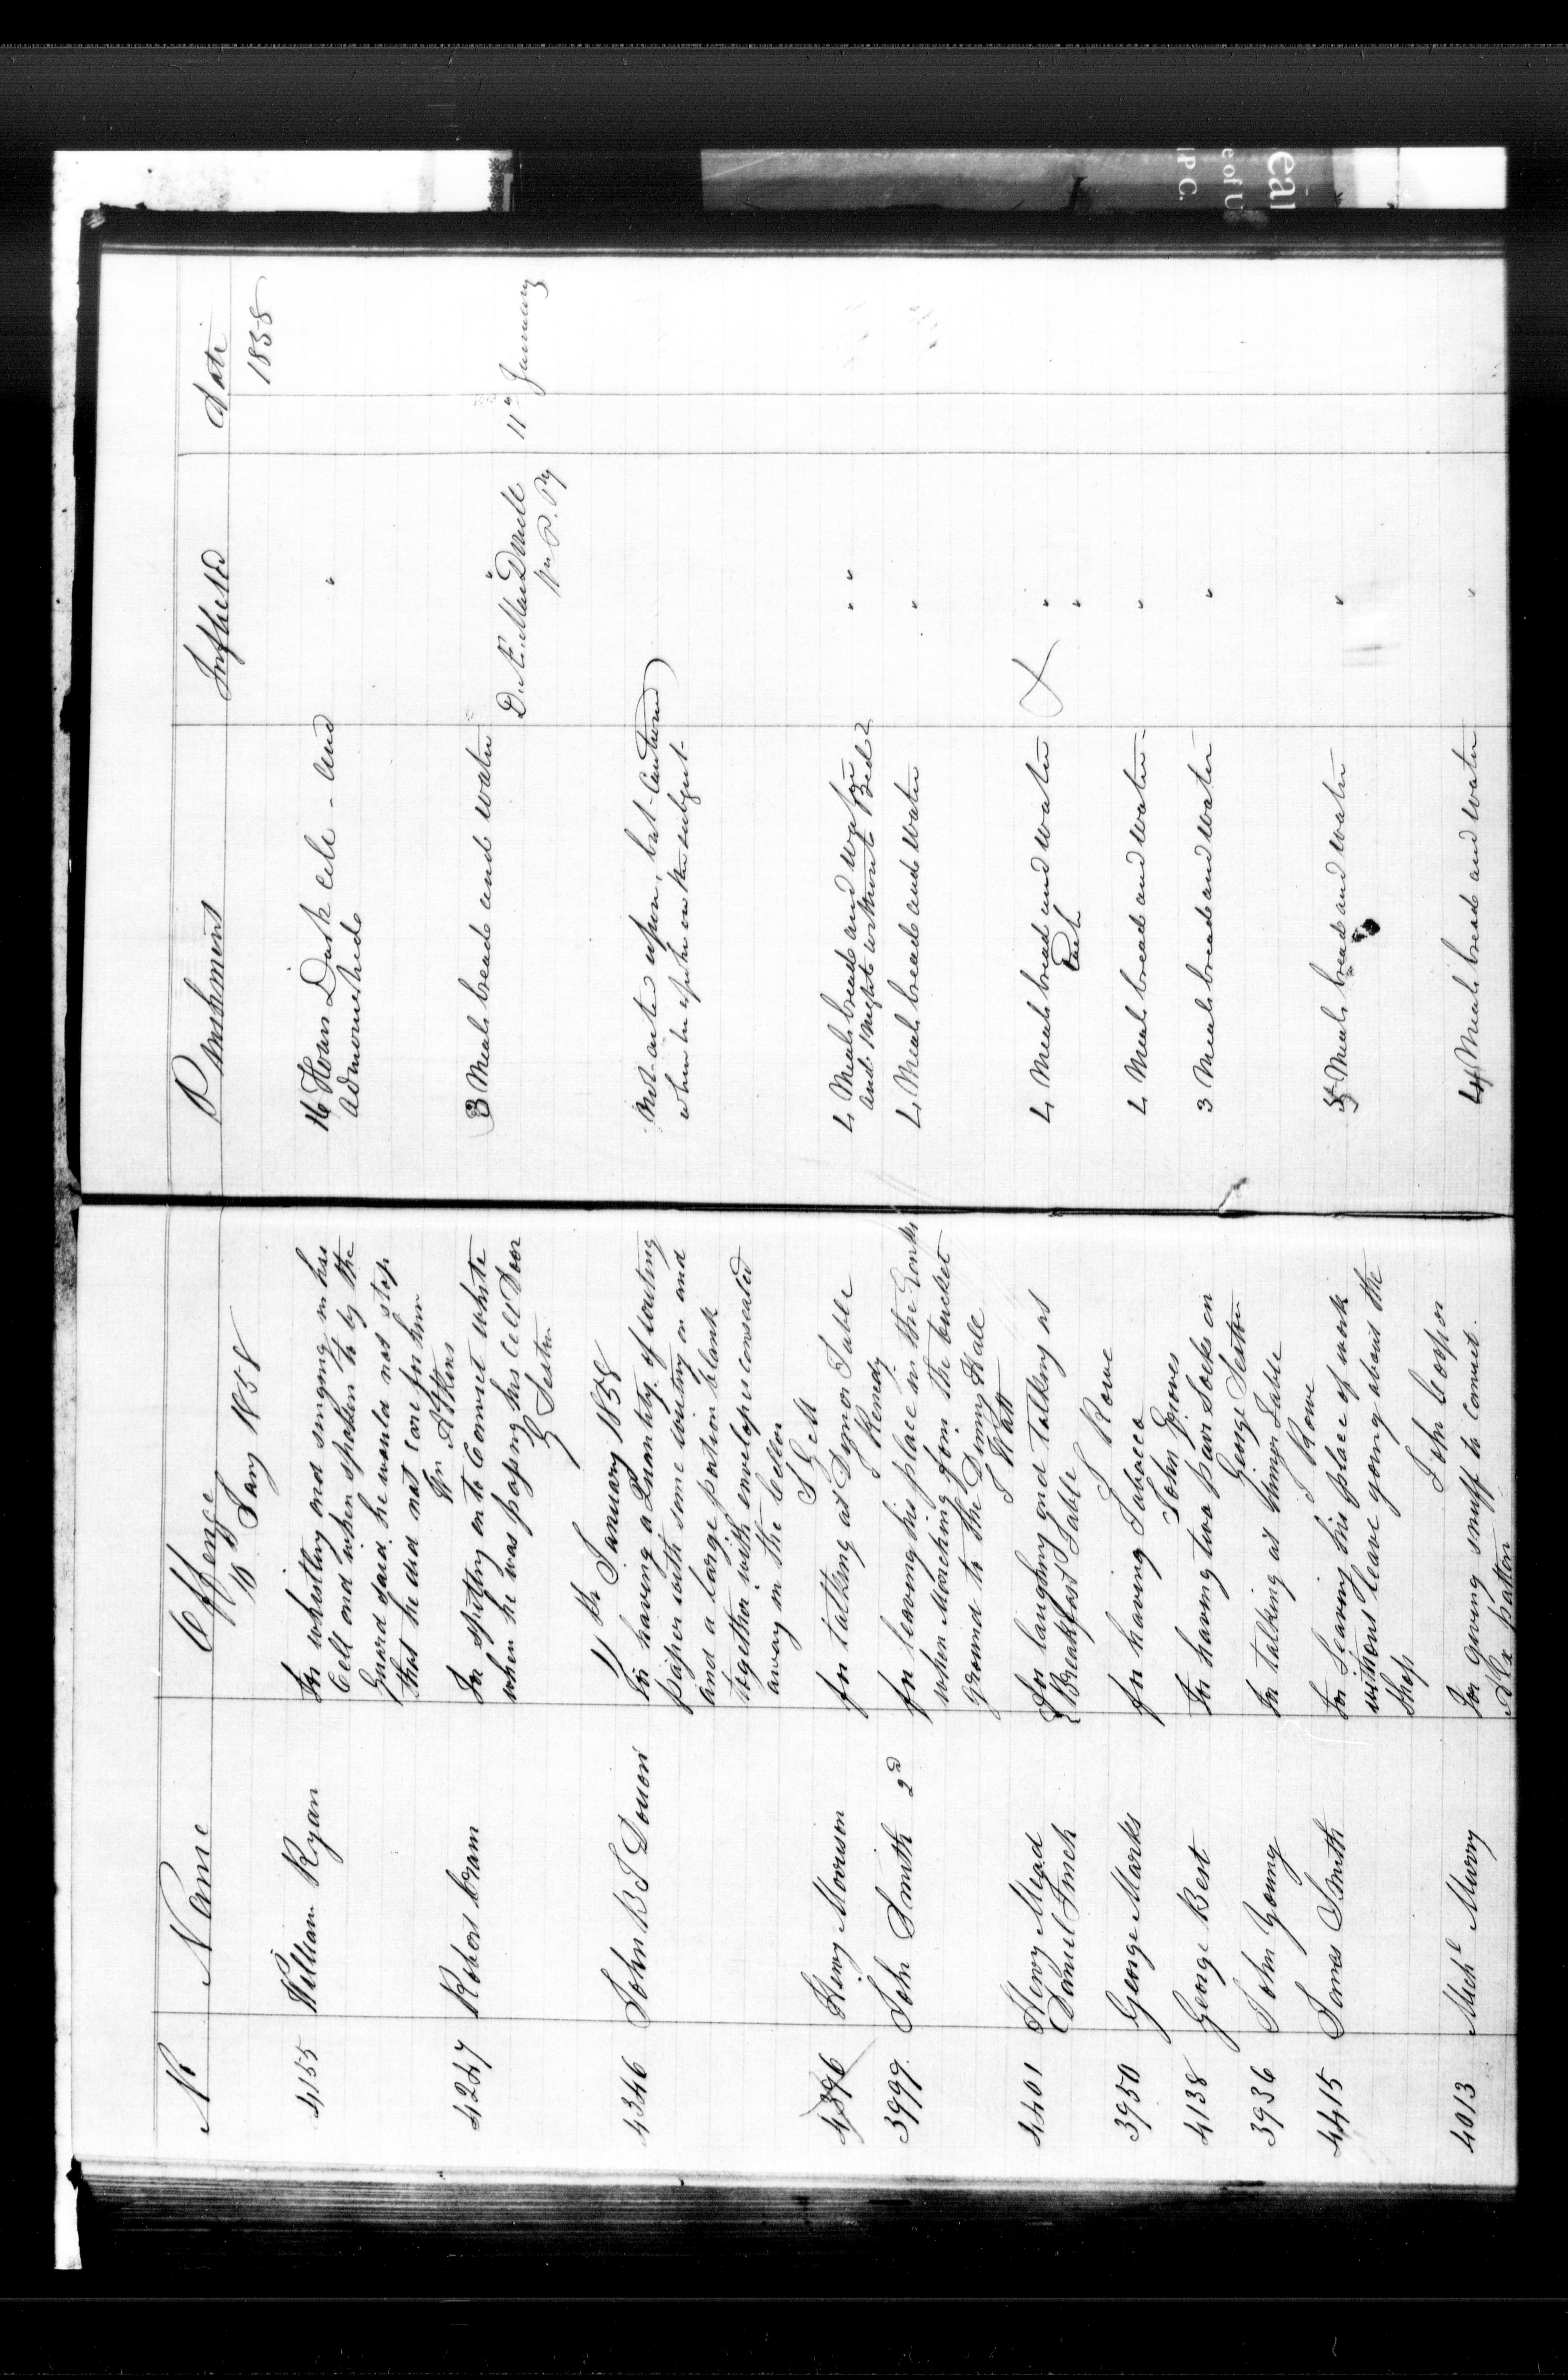 No Name Offence Punishment Inflicted Date
10 Jany 1858 1858
4155 William Ryan For whistling and singing in his 16 Hours Dark Cell - and "
Cell and when spoken to by the admonished
Guard said he would not stop
that he did not care for him
Wm Atkins
4247 Robert Cram For spitting on to Convict White 3 Meals bread and water "
when he was passing his Cell Door D. Æ. MacDonell 11th January
G Sexton W. P. Py
11th January 1858
4346 John B J Douori For having a Quantity of writing Not acted upon, but Cautioned
paper with some writing on and when he spoke on the subject
and a large portion blank
together with envelopes concealed
away in the Cellar
S Gell
4396 Henry Morrison for talking at Dinner Table 4 Meals bread and water " "
J Kenedy and 1 Night without Bed
3999 John Smith 2d for leaving his place in the Ranks 4 Meals bread and water "
when Marching from the bucket
ground to the Dining Hall
J Watt
4401 Henry Mead For laughing and talking at 4 Meals bread and water "
Daniel Finch Breakfast Table Each "
J Rowe
3950 George Marks for having Tobacco 4 Meals bread and water "
John Groves
4138 George Best For having two pair Socks on 3 Meals bread and water "
George Sexton
3936 John Young For talking at Dinner Table
J Rowe
4415 James Smith For leaving his place of work 3 Meals bread and water "
without leave going about the
Shop
John Cooper
4013 Michl Murry For giving snuff to Convict 4 Meals bread and water "
Alx patton
eal
e of U
P C.